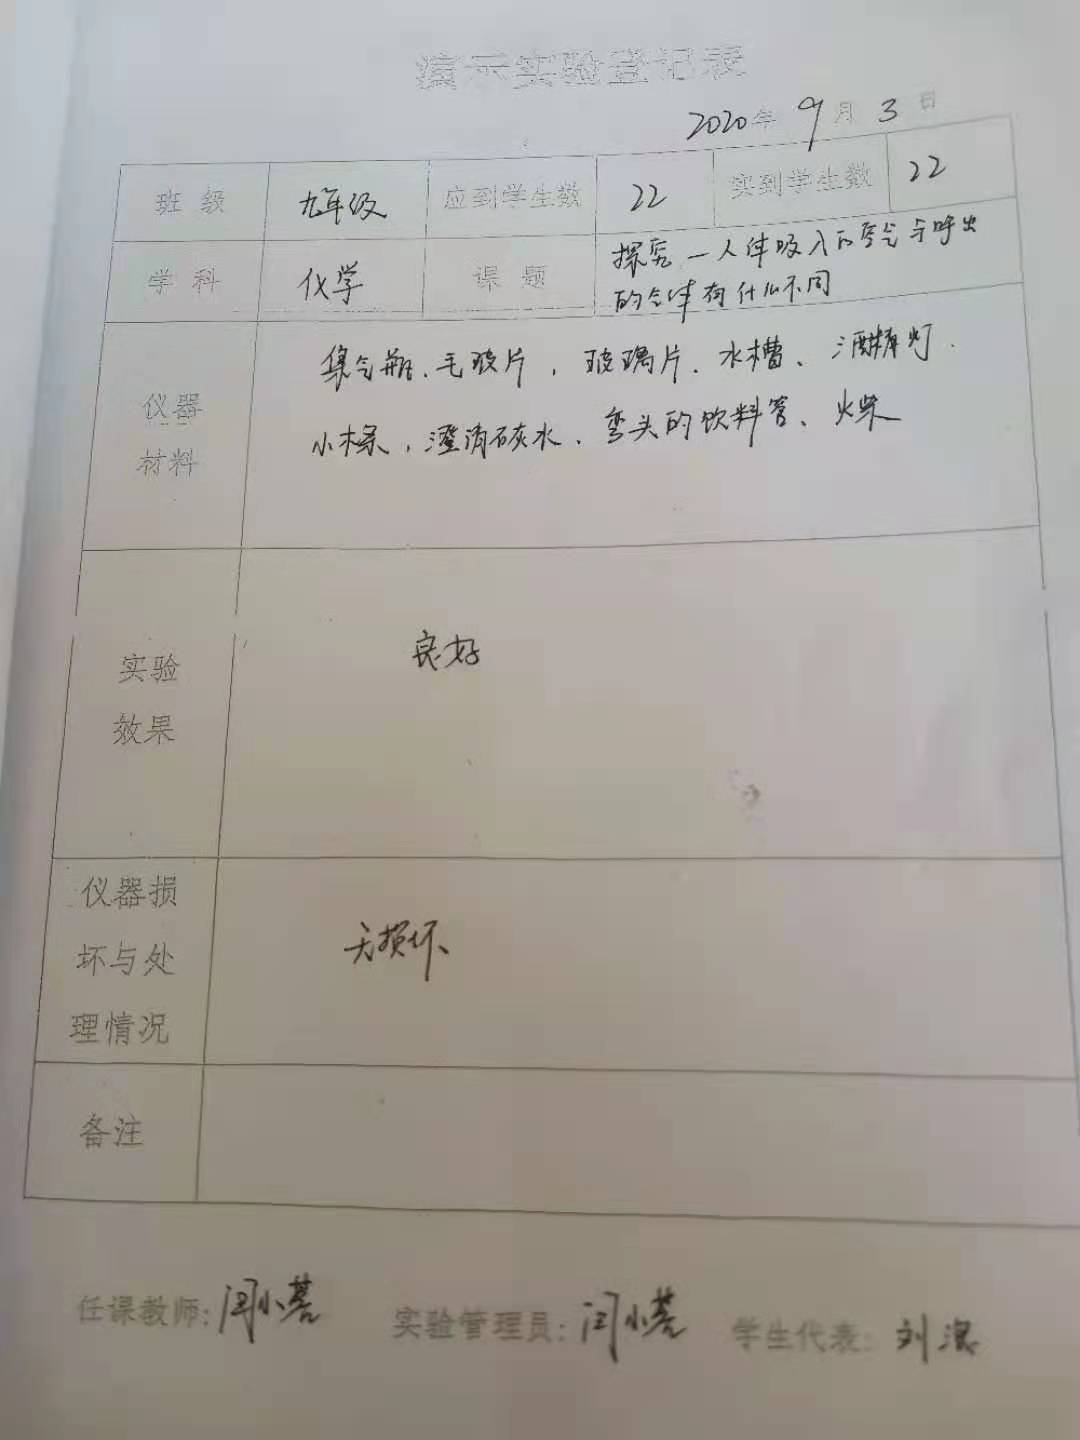 演示实验登记表
2020年 9月 3日
班级 九年级 应到学生数 22 实到学生数 22
学科 化学 课题 探究一人体吸入的空气与呼出
的气体有什么不同
仪器
材料
集气瓶、毛玻片,玻璃片、水槽、酒精灯、
小木条,澄清石灰水、弯头的饮料管、火柴
实验
效果
良好
仪器损
坏与处
理情况
无损坏
备注
任课教师:闫小 实验管理员:闫小 学生代表:刘浪